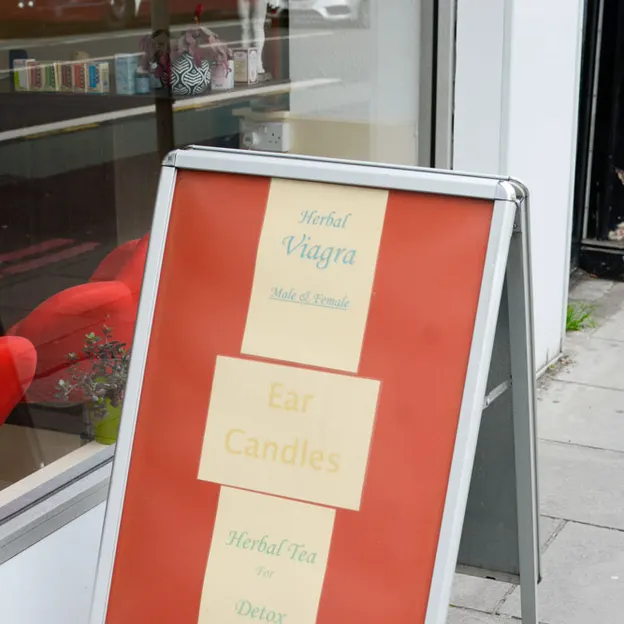 Herbal
Viagra
Male & Female
Ear
Candles
Herbal Tea
For
Detox